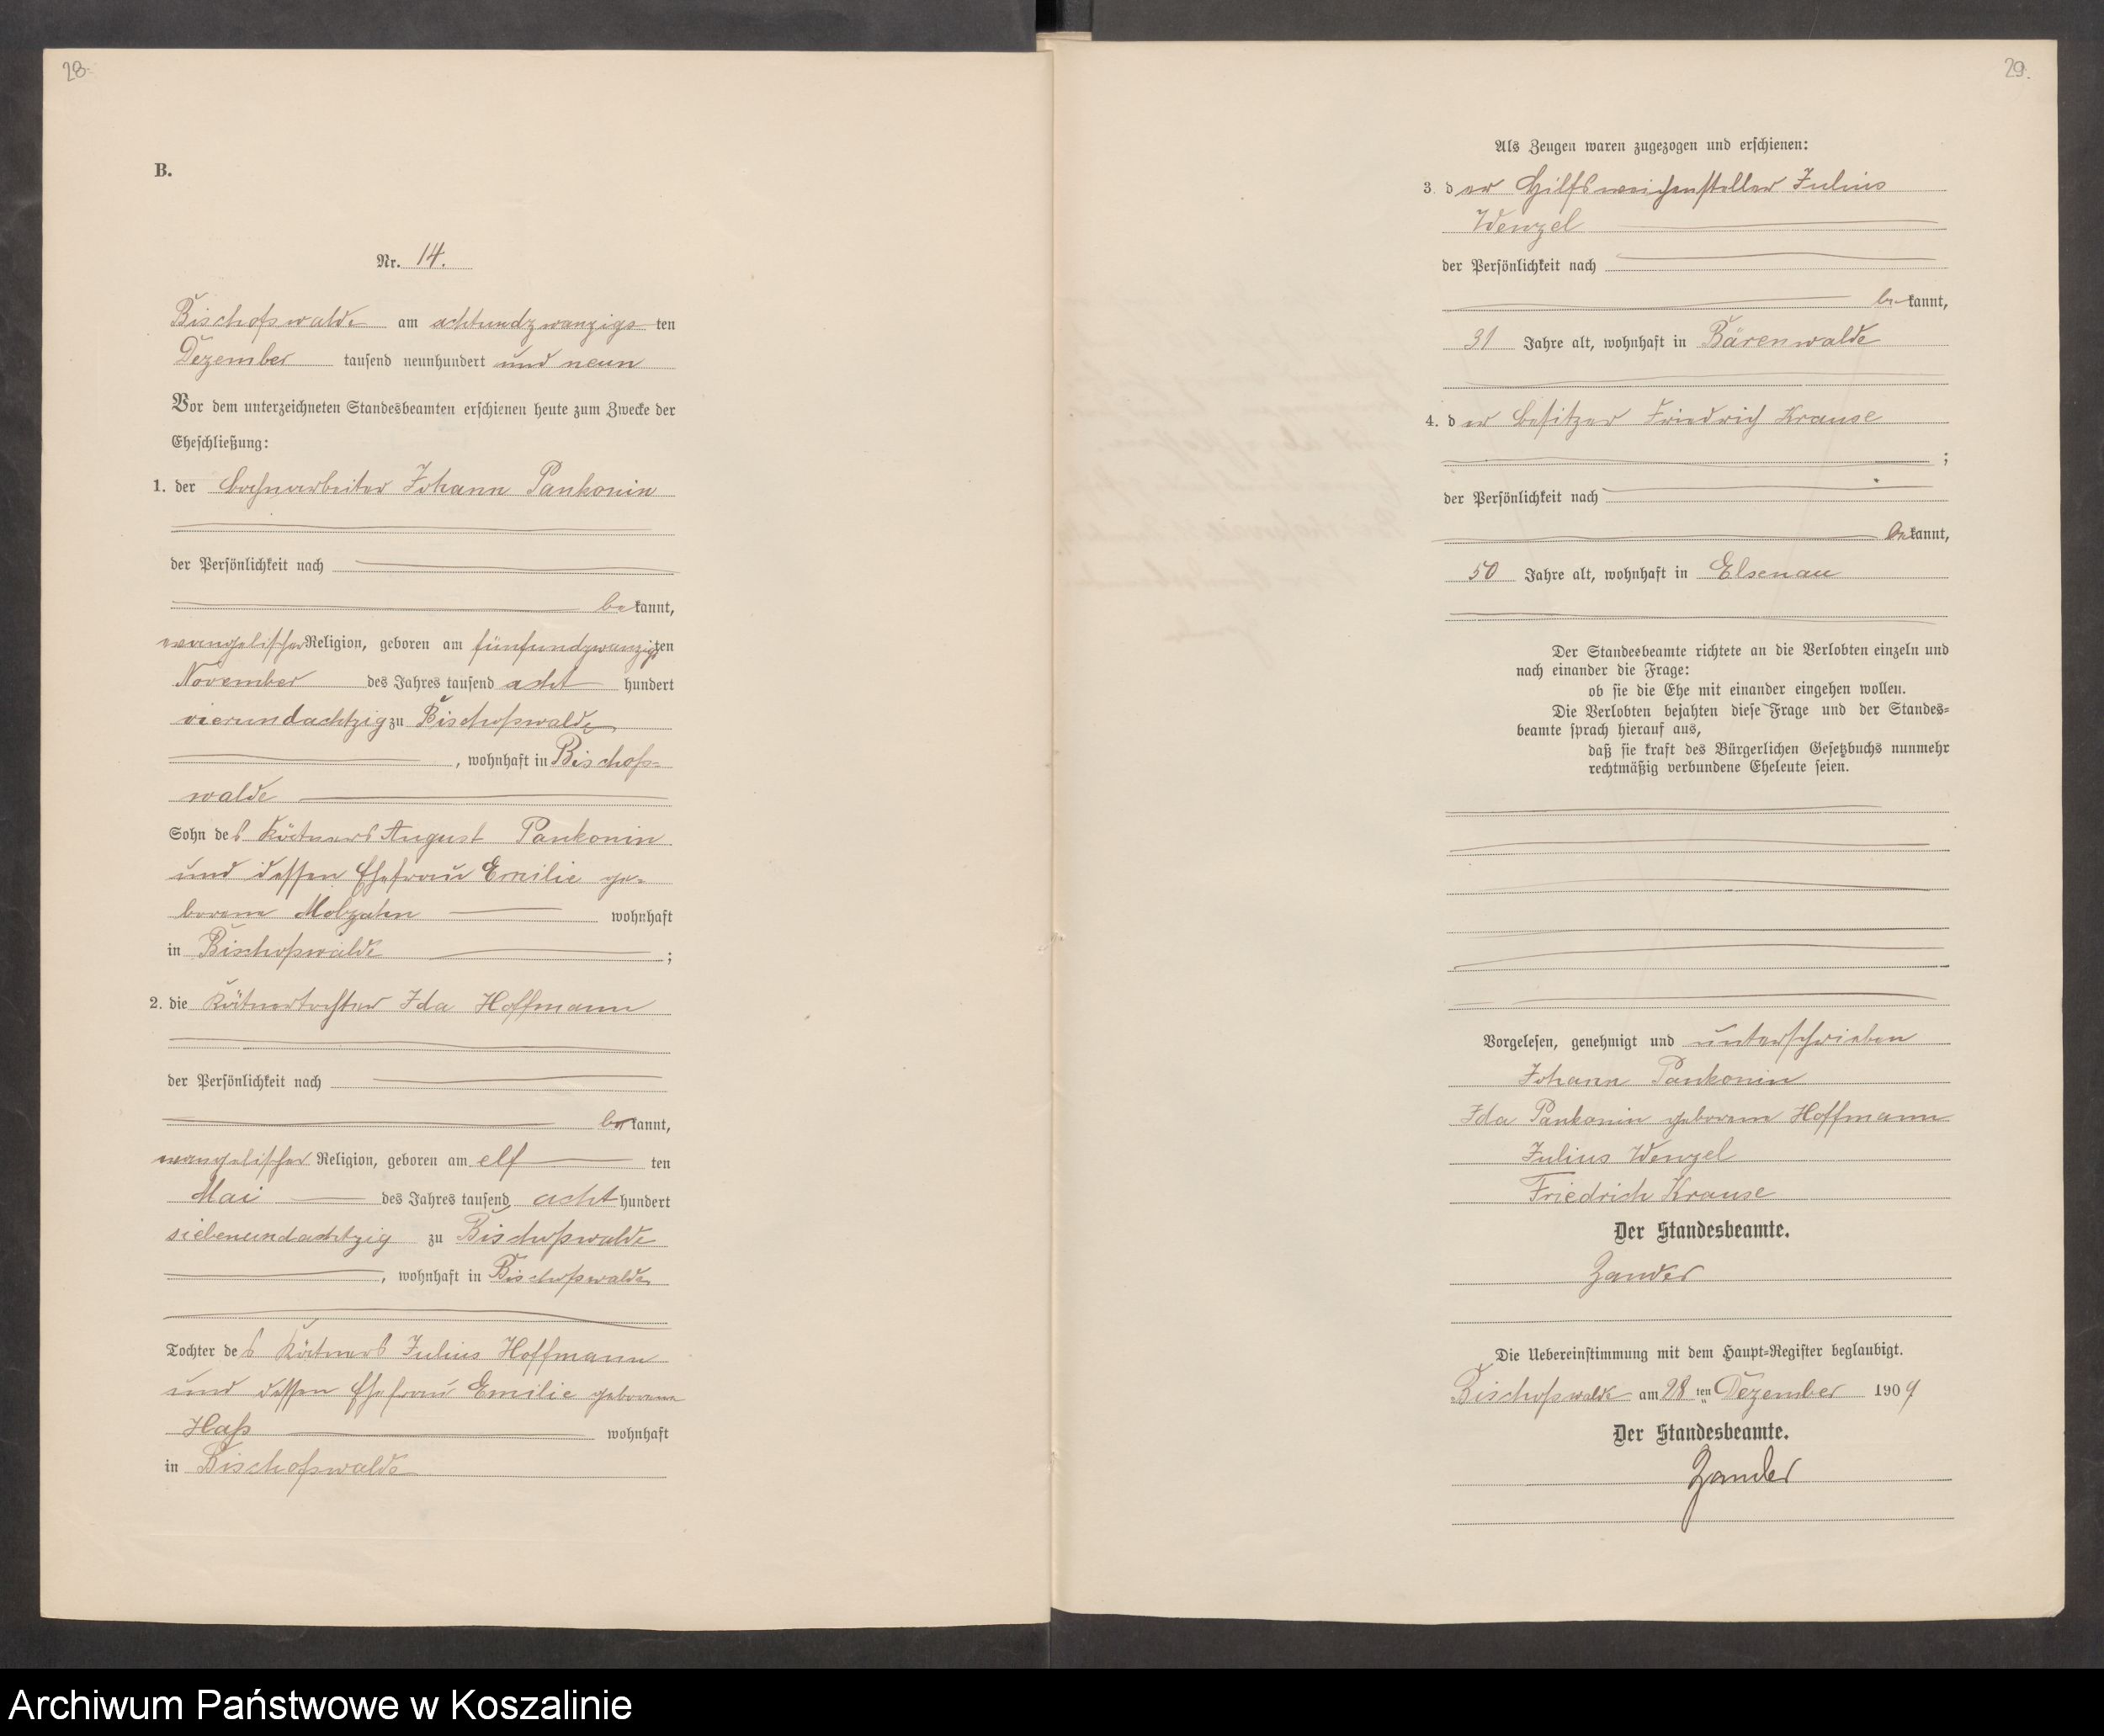 28.
B.
Nr. 14.
Bischofswalde am achtundzwanzigsten
Dezember tausend neunhundert und neun
Vor dem unterzeichneten Standesbeamten erschienen heute zum Zwecke der
Eheschließung:
1. der Bahnarbeiter Johann Pankonin
der Persönlichkeit nach
bekannt,
evangelischer Religion, geboren am fünfundzwanzigsten
November des Jahres tausend acht hundert
vierundachtzig zu Bischofswalde
, wohnhaft in Bischofs-
walde
Sohn des Kätners August Pankonin
und dessen Ehefrau Emilie ge-
borene Molzahn wohnhaft
in Bischofswalde ;
2. die Kätnertochter Ida Hoffmann
der Persönlichkeit nach
bekannt,
evangelischer Religion, geboren am elf ten
Mai des Jahres tausend acht hundert
siebenundachtzig zu Bischofswalde
, wohnhaft in Bischofswalde
Tochter des Kätners Julius Hoffmann
und dessen Ehefrau Emilie geborene
Haß wohnhaft
in Bischofswalde
29.
Als Zeugen waren zugezogen und erschienen:
3. der Hilfsweichensteller Julius
Wenzel
der Persönlichkeit nach
bekannt,
31 Jahre alt, wohnhaft in Bärenwalde
4. der Besitzer Friedrich Krause
;
der Persönlichkeit nach
bekannt,
50 Jahre alt, wohnhaft in Elsenau
Der Standesbeamte richtete an die Verlobten einzeln und
nach einander die Frage:
ob sie die Ehe mit einander eingehen wollen.
Die Verlobten bejahten diese Frage und der Standes-
beamte sprach hierauf aus,
daß sie kraft des Bürgerlichen Gesetzbuchs nunmehr
rechtmäßig verbundene Eheleute seien.
Vorgelesen, genehmigt und unterschrieben
Johann Pankonin
Ida Pankonin geborene Hoffmann
Julius Wenzel
Friedrich Krause
Der Standesbeamte.
Zander
Die Uebereinstimmung mit dem Haupt-Register beglaubigt.
Bischofswalde am 28 ten Dezember 1909
Der Standesbeamte.
Zander
Archiwum Państwowe w Koszalinie